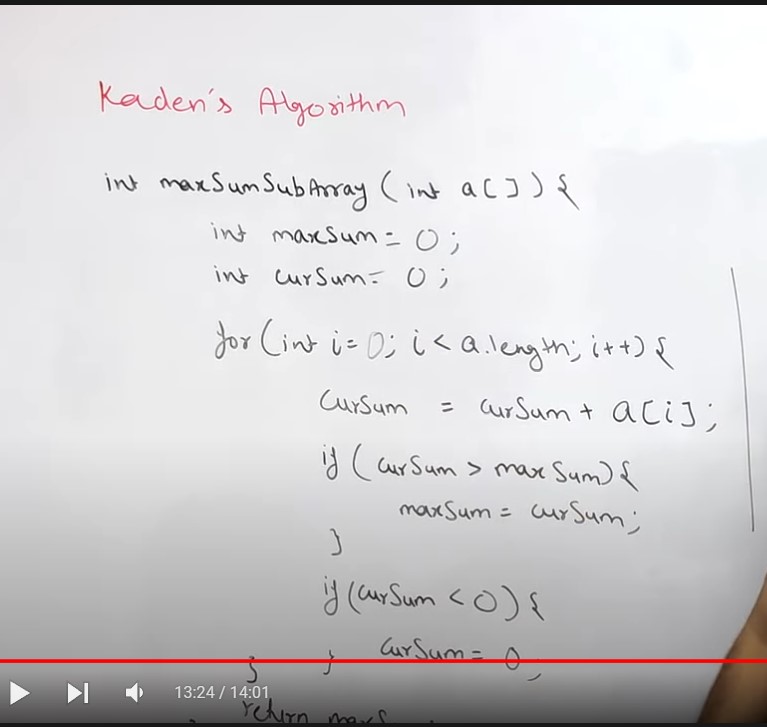 Kaden's Algorithm
int maxSumSubArray (int a[]) {
int maxSum = 0;
int curSum = 0;
for (int i=0; i < a.length; i++) {
curSum = curSum + a[i];
if (curSum > maxSum) {
maxSum = curSum;
}
if (curSum < 0) {
curSum = 0;
} }
13:24 / 14:01
return